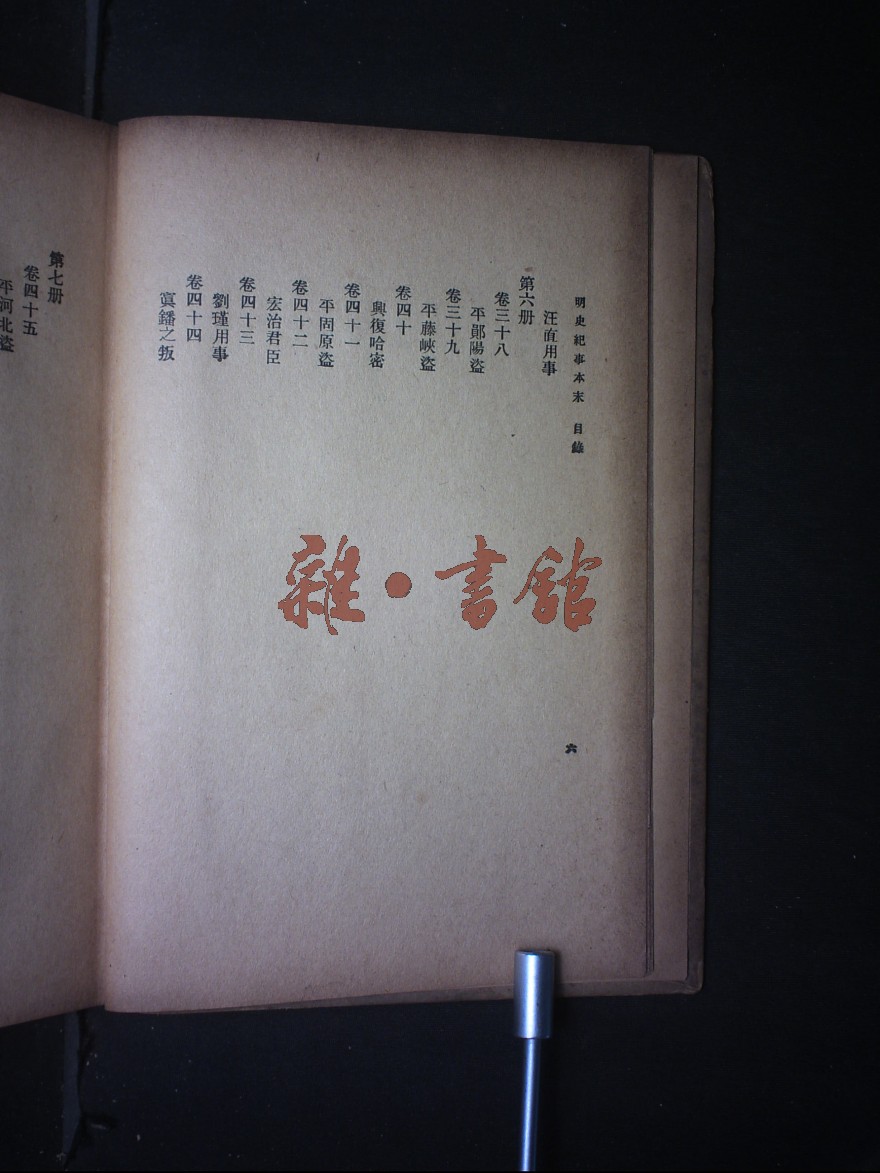 明史紀事本末 目錄
汪直用事
第六册
卷三十八
平鄖陽盜
卷三十九
平藤峽盜
卷四十
興復哈密
卷四十一
平固原盜
卷四十二
宏治君臣
卷四十三
劉瑾用事
卷四十四
寘鐇之叛
六
第七册
卷四十五
平河北盜
雜·書館